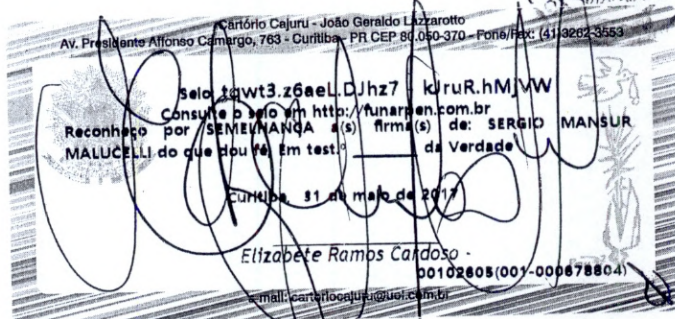 Cartório Cajuru - João Geraldo Lazzarotto
Av. Presidente Affonso Camargo, 763 - Curitiba - PR CEP 80.050-370 - Fone/Fax: (41) 3262-3553
Selo tqwt3.z6aeL.DJhz7 kJruR.hMjVW
Consulte o selo em http://funarpen.com.br
Reconheço por SEMELHANÇA a(s) firma(s) de: SERGIO MANSUR
MALUCELLI do que dou fé. Em test.º ______ da Verdade
Curitiba, 31 de maio de 2017
Elizabete Ramos Cardoso -
00102605(001-000678804)
e-mail: cartoriocajuru@uol.com.br